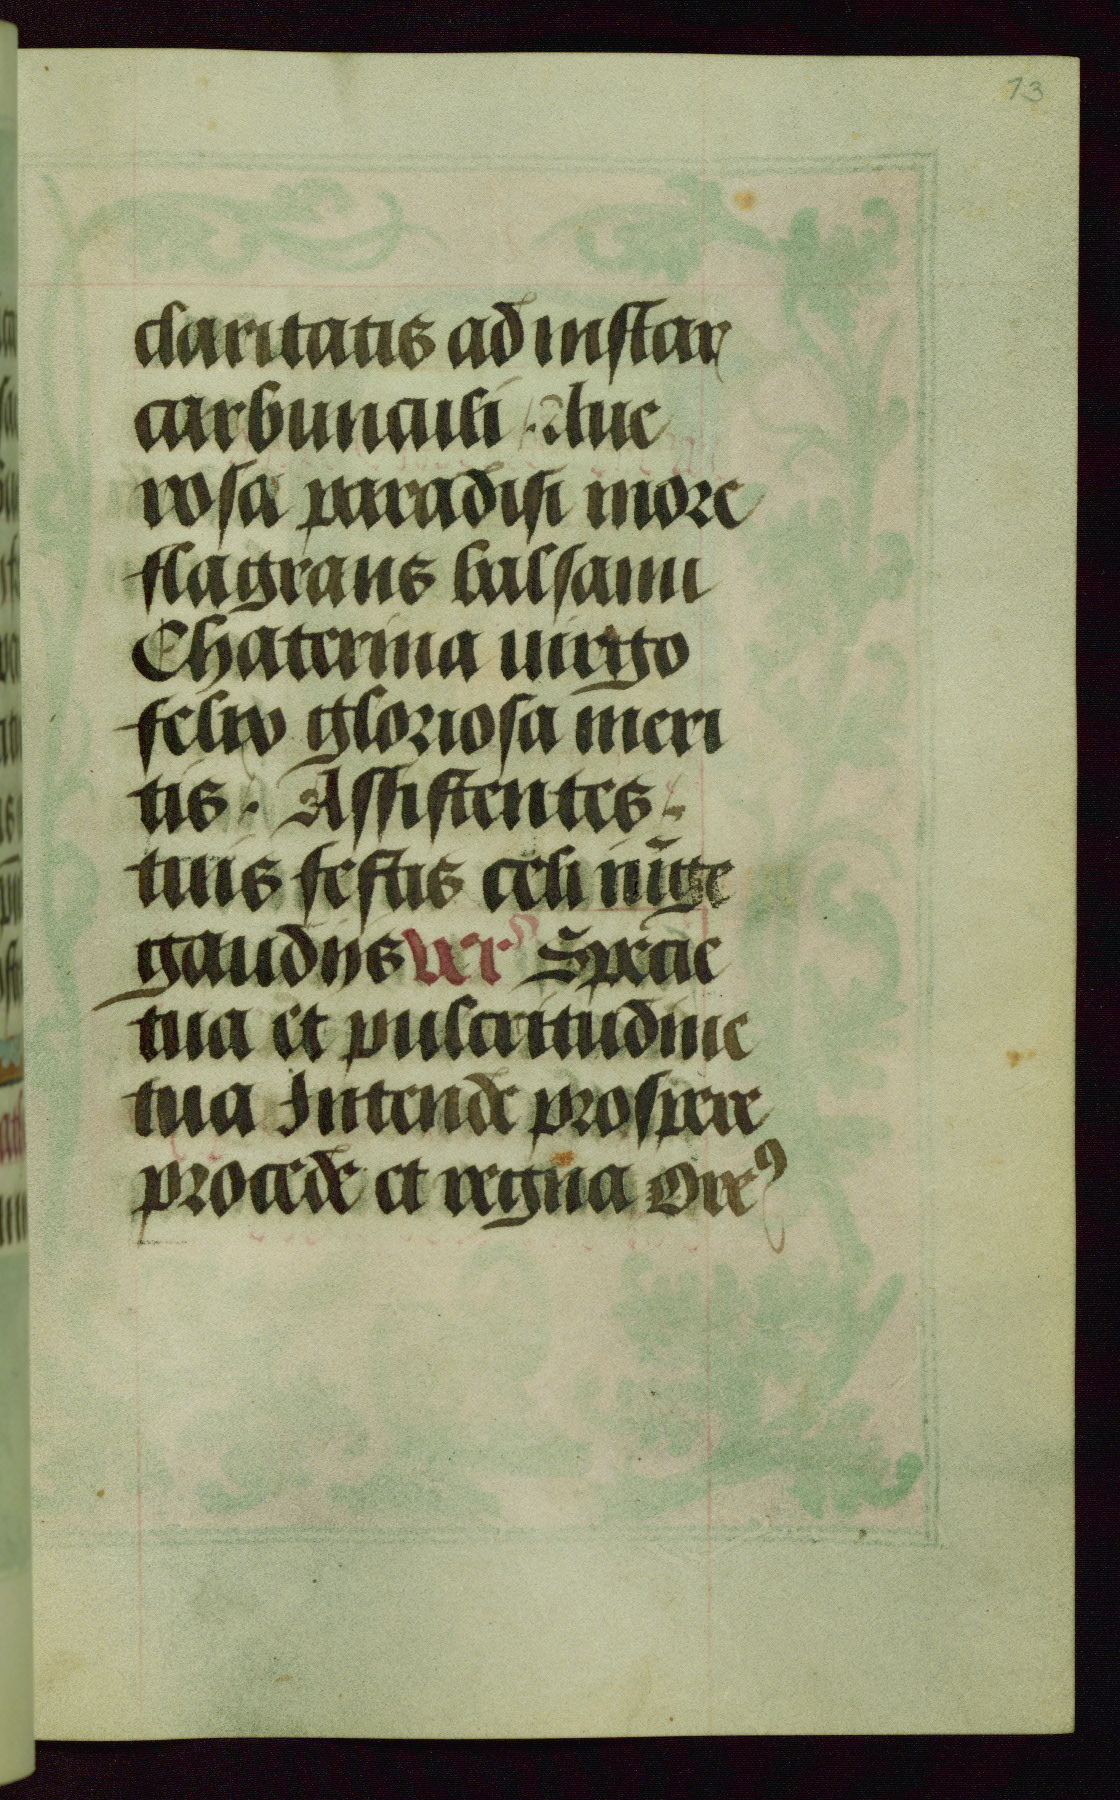 73
claritatis ad instar
carbunculi · Aue
rosa paradisi more
flagrans balsami
Chaterina uirgo
felix gloriosa meri
tis · Assistentes
tuis festis celi iu̅ge
gaudijs Ver Specie
tua et pulcritudine
tua Intende prospere
procede et regna Ore᾽